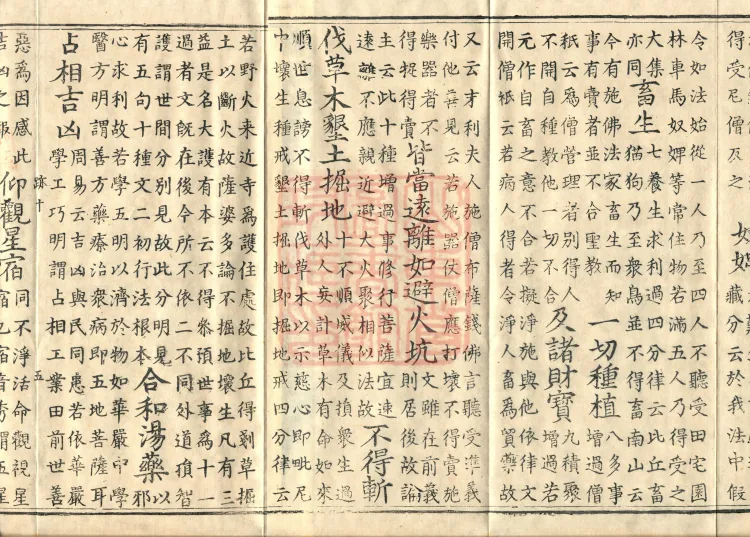 得受尼僧反之
藏分云於我法中假
令如法始從一人乃至四人不聽受田宅園
林車馬奴婢等常住物若滿五人乃得受之
大集
亦同
畜生
七養生求利過四分律云比丘畜
猫狗乃至衆鳥並不得畜南山云
今有施佛法家畜生而知
事有賣者並不合聖教
一切種植
八多事
過僧
祇云爲僧營理者別得人
不開自種教他一切不合
及諸財寶
九積聚
增過若
元作自畜之意若擬淨施與他依律文
開僧祇云若病人不合得者令淨人畜爲貿藥故
又云才利夫人施僧布薩錢佛言聽受準義
付他毋見云若施器仗僧應打壞不得賣施
樂器者不
得捉得賣
皆當遠離如避火坑
文雖在前義
則居後故論
主云此十種增過事修行菩薩宜速
遠離不應親近避大火聚相似法故
不得斬
伐草木墾土掘地
十不順威儀及損衆生過
外人妄計草木有命如來
順世息謗不得斬伐草木以示慈心即毗尼
中壞生種戒墾土掘地即掘地戒四分律云
若野火來近寺爲護住處故比丘得剗草掘
土以斷火故薩婆多論不掘地壞生凡有三
益是名大護有本云不得參預世事爲十一
過者文旣在後今所不依二不同外道損智
護謂世間分別見故此分明見
有五句十種文二初行法根本
合和湯藥
以
邪
心求利故若學五明以濟於物如華嚴中學
醫方明謂善方藥療治衆病即五地菩薩耳
占相吉凶
周易云吉凶與民同患若依華嚴
學工巧明謂占相工業田前世善
跡十
五
惡爲因感此
仰觀星宿
同不淨活命觀視星